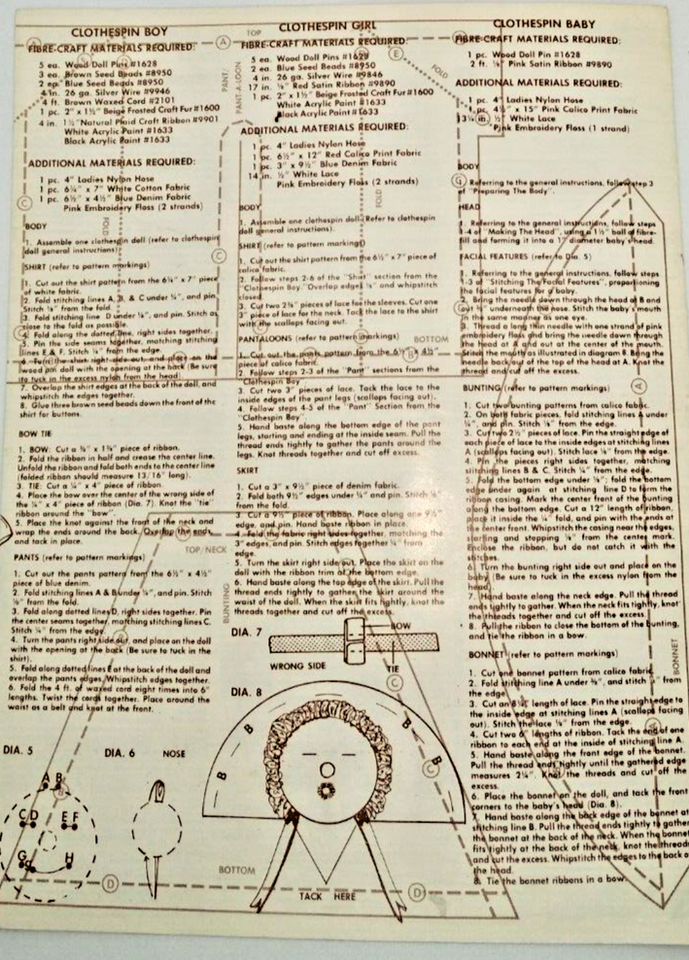 CLOTHESPIN BOY
FIBRE-CRAFT MATERIALS REQUIRED:
5 ea. Wood Doll Pins #1628
3 ea. Brown Seed Beads #8950
2 ea. Blue Seed Beads #8950
4 in. 26 ga. Silver Wire #9946
4 ft. Brown Waxed Cord #2101
1 pc. 2" x 1½" Beige Frosted Craft Fur #1600
4 in. 1½" Natural Plaid Craft Ribbon #9901
White Acrylic Paint #1633
Black Acrylic Paint #1633
ADDITIONAL MATERIALS REQUIRED:
1 pc. 4" Ladies Nylon Hose
1 pc. 6¼" x 7" White Cotton Fabric
1 pc. 6½" x 4½" Blue Denim Fabric
Pink Embroidery Floss (2 strands)
BODY
1. Assemble one clothespin doll (refer to clothespin
doll general instructions).
SHIRT (refer to pattern markings)
1. Cut out the shirt pattern from the 6¼" x 7" piece
of white fabric.
2. Fold stitching lines A, B, & C under ¼", and pin.
Stitch ⅛" from the fold.
3. Fold stitching line D under ¼", and pin. Stitch as
close to the fold as possible.
4. Fold along the dotted line, right sides together.
5. Pin the side seams together, matching stitching
lines E & F. Stitch ¼" from the edge.
6. Turn the shirt right side out, and place on the
wood pin doll with the opening at the back (Be sure
to tuck in the excess nylon from the head).
7. Overlap the shirt edges at the back of the doll, and
whipstitch the edges together.
8. Glue three brown seed beads down the front of the
shirt for buttons.
BOW TIE
1. BOW: Cut a ¾" x 1⅝" piece of ribbon.
2. Fold the ribbon in half and crease the center line.
Unfold the ribbon and fold both ends to the center line
(folded ribbon should measure 13/16" long).
3. TIE: Cut a ¼" x 4" piece of ribbon.
4. Place the bow over the center of the wrong side of
the ¼" x 4" piece of ribbon (Dia. 7). Knot the "tie"
ribbon around the "bow".
5. Place the knot against the front of the neck and
wrap the ends around the back. Overlap the ends
and tack in place.
PANTS (refer to pattern markings)
1. Cut out the pants pattern from the 6½" x 4½"
piece of blue denim.
2. Fold stitching lines A & B under ¼", and pin. Stitch
⅛" from the fold.
3. Fold along dotted lines D, right sides together. Pin
the center seams together, matching stitching lines C.
Stitch ¼" from the edge.
4. Turn the pants right side out, and place on the doll
with the opening at the back (Be sure to tuck in the
shirt).
5. Fold along dotted lines E at the back of the doll and
overlap the pants edges. Whipstitch edges together.
6. Fold the 4 ft. of waxed cord eight times into 6"
lengths. Twist the cords together. Place around the
waist as a belt and knot at the front.
DIA. 5
A B
C D
E F
G
H
DIA. 6
NOSE
CLOTHESPIN GIRL
FIBRE-CRAFT MATERIALS REQUIRED:
5 ea. Wood Doll Pins #1628
2 ea. Blue Seed Beads #8950
4 in. 26 ga. Silver Wire #9846
17 in. ⅛" Red Satin Ribbon #9890
1 pc. 2" x 1½" Beige Frosted Craft Fur #1600
White Acrylic Paint #1633
Black Acrylic Paint #1633
ADDITIONAL MATERIALS REQUIRED:
1 pc. 4" Ladies Nylon Hose
1 pc. 6½" x 12" Red Calico Print Fabric
1 pc. 3" x 9½" Blue Denim Fabric
14 in. ½" White Lace
Pink Embroidery Floss (2 strands)
BODY
1. Assemble one clothespin doll (Refer to clothespin
doll general instructions).
SHIRT (refer to pattern markings)
1. Cut out the shirt pattern from the 6¼" x 7" piece of
calico fabric.
2. Follow steps 2-6 of the "Shirt" section from the
"Clothespin Boy". Overlap edges ¼" and whipstitch
closed.
3. Cut two 2¾" pieces of lace for the sleeves. Cut one
3" piece of lace for the neck. Tack the lace to the shirt
with the scallops facing out.
PANTALOONS (refer to pattern markings)
1. Cut out the pants pattern from the 6½" x 4½"
piece of calico fabric.
2. Follow steps 2-3 of the "Pant" sections from the
"Clothespin Boy".
3. Cut two 3" pieces of lace. Tack the lace to the
inside edges of the pant legs (scallops facing out).
4. Follow steps 4-5 of the "Pant" Section from the
"Clothespin Boy".
5. Hand baste along the bottom edge of the pant
legs, starting and ending at the inside seam. Pull the
thread ends tightly to gather the pants around the
legs. Knot threads together and cut off excess.
SKIRT
1. Cut a 3" x 9½" piece of denim fabric.
2. Fold both 9½" edges under ¼" and pin. Stitch ⅛"
from the fold.
3. Cut a 9½" piece of ribbon. Place along one 9½"
edge, and pin. Hand baste ribbon in place.
4. Fold the fabric right sides together, matching the
3" edges, and pin. Stitch edges together ¼" from
edge.
5. Turn the skirt right side out. Place the skirt on the
doll with the ribbon trim at the bottom edge.
6. Hand baste along the top edge of the skirt. Pull the
thread ends tightly to gather the skirt around the
waist of the doll. When the skirt fits tightly, knot the
threads together and cut off excess.
DIA. 7
BOW
WRONG SIDE
TIE
DIA. 8
B
B
B
B
TACK HERE
CLOTHESPIN BABY
FIBRE-CRAFT MATERIALS REQUIRED:
1 pc. Wood Doll Pin #1628
2 ft. ⅛" Pink Satin Ribbon #9890
ADDITIONAL MATERIALS REQUIRED:
1 pc. 4" Ladies Nylon Hose
1 pc. 4½" x 15" Pink Calico Print Fabric
13¼ in. ½" White Lace
Pink Embroidery Floss (1 strand)
BODY
1. Referring to the general instructions, follow step 3
of "Preparing The Body".
HEAD
1. Referring to the general instructions, follow steps
1-4 of "Making The Head", using a 1½" ball of fibre-
fill and forming it into a 1" diameter baby's head.
FACIAL FEATURES (refer to Dia. 5)
1. Referring to the general instructions, follow steps
1-3 of "Stitching The Facial Features", proportioning
the facial features for a baby.
2. Bring the needle down through the head at B and
out ¼" underneath the nose. Stitch the baby's mouth
in the same manner as one eye.
3. Thread a long thin needle with one strand of pink
embroidery floss and bring the needle down through
the head at A and out at the center of the mouth.
Stitch the mouth as illustrated in diagram B. Bring the
needle back out of the top of the head at A. Knot the
thread and cut off the excess.
BUNTING (refer to pattern markings)
1. Cut two bunting patterns from calico fabric.
2. On both fabric pieces, fold stitching lines A under
¼", and pin. Stitch ⅛" from the fold.
3. Cut two 2½" pieces of lace. Pin the straight edge of
each piece of lace to the inside edges at stitching lines
A (scallops facing out). Stitch lace ⅛" from the edge.
4. Pin the pieces right sides together, matching
stitching lines B & C. Stitch ¼" from the edge.
5. Fold the bottom edge under ⅛"; fold the bottom
edge under again at stitching line D to form the
ribbon casing. Mark the center front of the bunting
along the bottom edge. Cut a 12" length of ribbon,
place it inside the ¼" fold, and pin with the ends at
the center front. Whipstitch the casing near the edges,
starting and stopping ⅛" from the center mark.
Enclose the ribbon, but do not catch it with the
stitches.
6. Turn the bunting right side out and place on the
baby (Be sure to tuck in the excess nylon from the
head).
7. Hand baste along the neck edge. Pull the thread
ends tightly to gather. When the neck fits tightly, knot
the threads together and cut off the excess.
8. Pull the ribbon to close the bottom of the bunting,
and tie the ribbon in a bow.
BONNET (refer to pattern markings)
1. Cut one bonnet pattern from calico fabric.
2. Fold stitching line A under ⅜", and stitch ¼" from
the edge.
3. Cut an 8¼" length of lace. Pin the straight edge to
the inside edge at stitching lines A (scallops facing
out). Stitch the lace ⅛" from the edge.
4. Cut two 6" lengths of ribbon. Tack the end of one
ribbon to each end at the inside of stitching line A.
5. Hand baste along the front edge of the bonnet.
Pull the thread ends tightly until the gathered edge
measures 2¼". Knot the threads and cut off the
excess.
6. Place the bonnet on the doll, and tack the front
corners to the baby's head (Dia. 8).
7. Hand baste along the back edge of the bonnet at
stitching line B. Pull the thread ends tightly to gather
the bonnet at the back of the neck. When the bonnet
fits tightly at the back of the neck, knot the threads
and cut the excess. Whipstitch the edges to the back of
the head.
8. Tie the bonnet ribbons in a bow.
TOP
A
E
FOLD
PANT
PANTALOON
C
FOLD
C
FOLD
BOTTOM
B
TOP/NECK
BUNTING
A
BONNET
C
C
BOTTOM
D
D